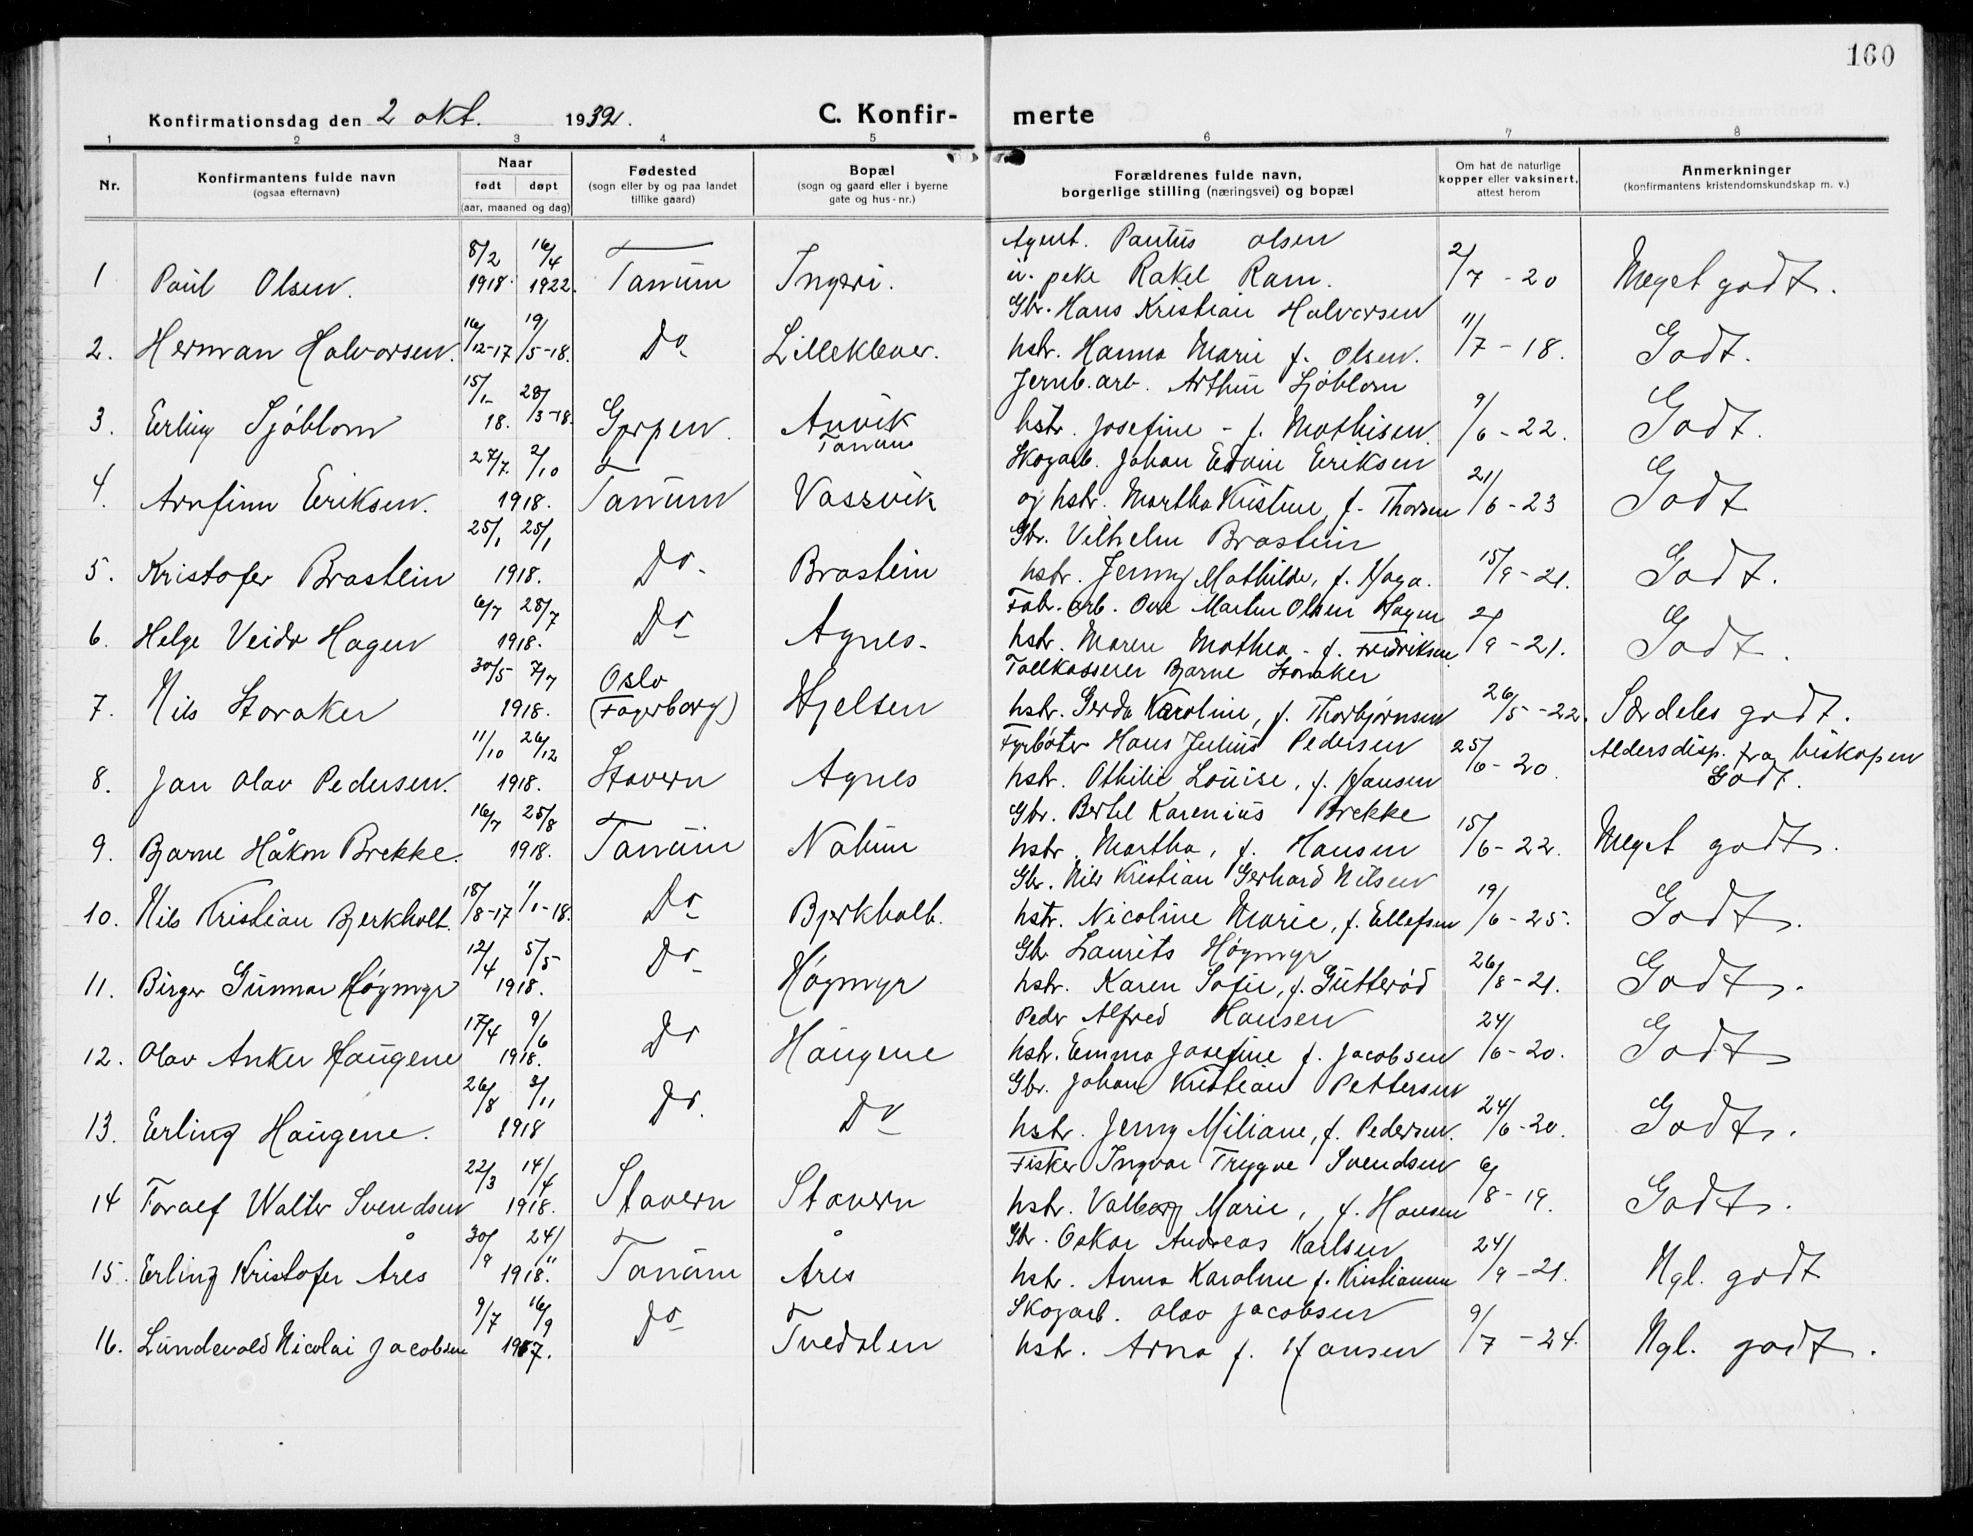 160
Konfirmationsdag den 2 okt. 1932. C. Konfir- merte
1 2 3 4 5 6 7 8
Nr. Konfirmantens fulde navn (ogsaa efternavn) Naar født døpt (aar, maaned og dag) Fødested (sogn eller by og paa landet tillike gaard) Bopæl (sogn og gaard eller i byerne gate og hus-nr.) Forældrenes fulde navn, borgerlige stilling (næringsvei) og bopæl Om hat de naturlige kopper eller vaksinert, attest herom Anmerkninger (konfirmantens kristendomskundskap m. v.)
Agent. Pontus Olsen
1 Paul Olsen. 8/2 1918. 16/4 1922. Tanum u. peke Rakel Ram. 2/7 - 20 Meget godt.
Gbr. Hans Kristian Halvorsen
2. Herman Halvorsen. 16/12-17 19/5-18. Do Lilleklever. hstr. Hanna Marie f. Olsen. 11/7 - 18. Godt.
Jernb.arb. Arthur Sjøblom
3. Erling Sjöblom 15/1-18. 28/3-18. Gjerpen. Anvik Tanum hstr. Josefine - f. Mathisen. 9/6 - 22. Godt.
Skogarb. Johan Edvin Eriksen
4. Arnfinn Eriksen. 27/7 2/10 1918. Tanum Vassvik og hstr. Martha Kristine, f. Thorsen 21/6 - 23 Godt
Gbr. Vilhelm Brastein
5. Kristofer Brastein 25/1 25/1 1918. Do. Brastein hstr. Jenny Mathilde, f. Haga. 15/9 - 21. Godt.
Fabr. arb. Ove Martin Olsen Hagen
6. Helge Veidar Hagen 6/7 28/7 1918. Do Agnes. hstr. Maren Mathea - f. Fredriksen 2/9 - 21. Godt.
Tollkasserer Bjarne Storaker
7. Nils Storaker 30/5 7/7 1918. Oslo (Fagerborg) Hjelten hstr. Gerda Karoline, f. Thorbjørnsen 26/5 - 22. Særdeles godt.
Fyrbøter Hans Julius Pedersen Aldersdisp. fra biskopen
8. Jan Olav Pedersen. 11/10 26/12 1918. Stavern Agnes hstr. Othilie Louise, f. Hansen 25/6 - 20. Godt.
Gbr. Bertel Karenius Brekke
9. Bjarne Håkon Brekke. 16/7 25/8 1918. Tanum Nalum hstr. Martha, f. Hansen 15/6 - 22. Meget godt.
Gbr. Nils Kristian Gerhard Nilsen
10. Nils Kristian Bjerkholt. 18/8-17 1/1-18. Do Bjerkholt. hstr. Nicoline Marie, f. Ellefsen 19/6 - 25. Godt.
Gbr Laurits Høymyr
11. Birger Gunnar Høymyr 12/4 5/5 1918. Do Høymyr hstr. Karen Sofie, f. Gutterød 26/8 - 21. Godt.
Peder Alfred Hansen
12. Olav Anker Haugene 17/4 9/6 1918. Do Haugene hstr. Emma Josefine f. Jacobsen 24/6 - 20. Godt
Gbr. Johan Kristian Pettersen
13. Erling Haugene. 26/8 3/11 1918 Do. Do hstr. Jenny Miliane, f. Pedersen. 24/6 - 20. Godt.
Fisker Ingvar Trygve Svendsen
14 Toralf Walter Svendsen 22/3 14/4 1918. Stavern Stavern hstr. Valborg Marie, f. Hansen 6/8 - 19. Godt.
Gbr. Oskar Andreas Karlsen
15. Erling Kristofer Åres 30/9 24/11 1918. Tanum Åres hstr. Anna Karoline f. Kristiansen 24/9 - 21. Ngl. godt
Skogarb. Olav Jacobsen
16. Lundevald Nicolai Jacobsen 9/7 16/9 1917. Do Tvedalen hstr. Arna f. Hansen 9/7 - 24. Ngl. godt.